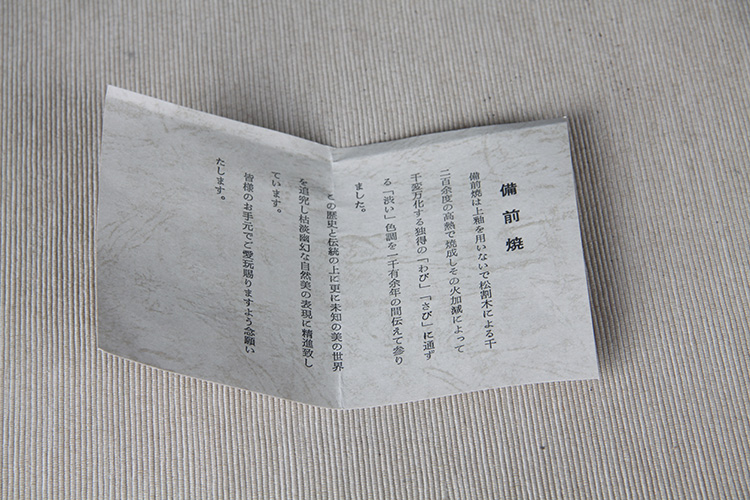 備前焼
備前焼は上釉を用いないで松割木による千
二百余度の高熱で焼成しその火加減によって
千変万化する独得の「わび」「さび」に通ず
る「渋い」色調を一千有余年の間伝えて参り
ました。
この歴史と伝統の上に更に未知の美の世界
を追究し枯淡幽幻な自然美の表現に精進致し
ています。
皆様のお手元でご愛玩賜りますよう念願い
たします。